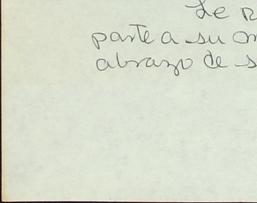 Le
parte a su
abrazo de